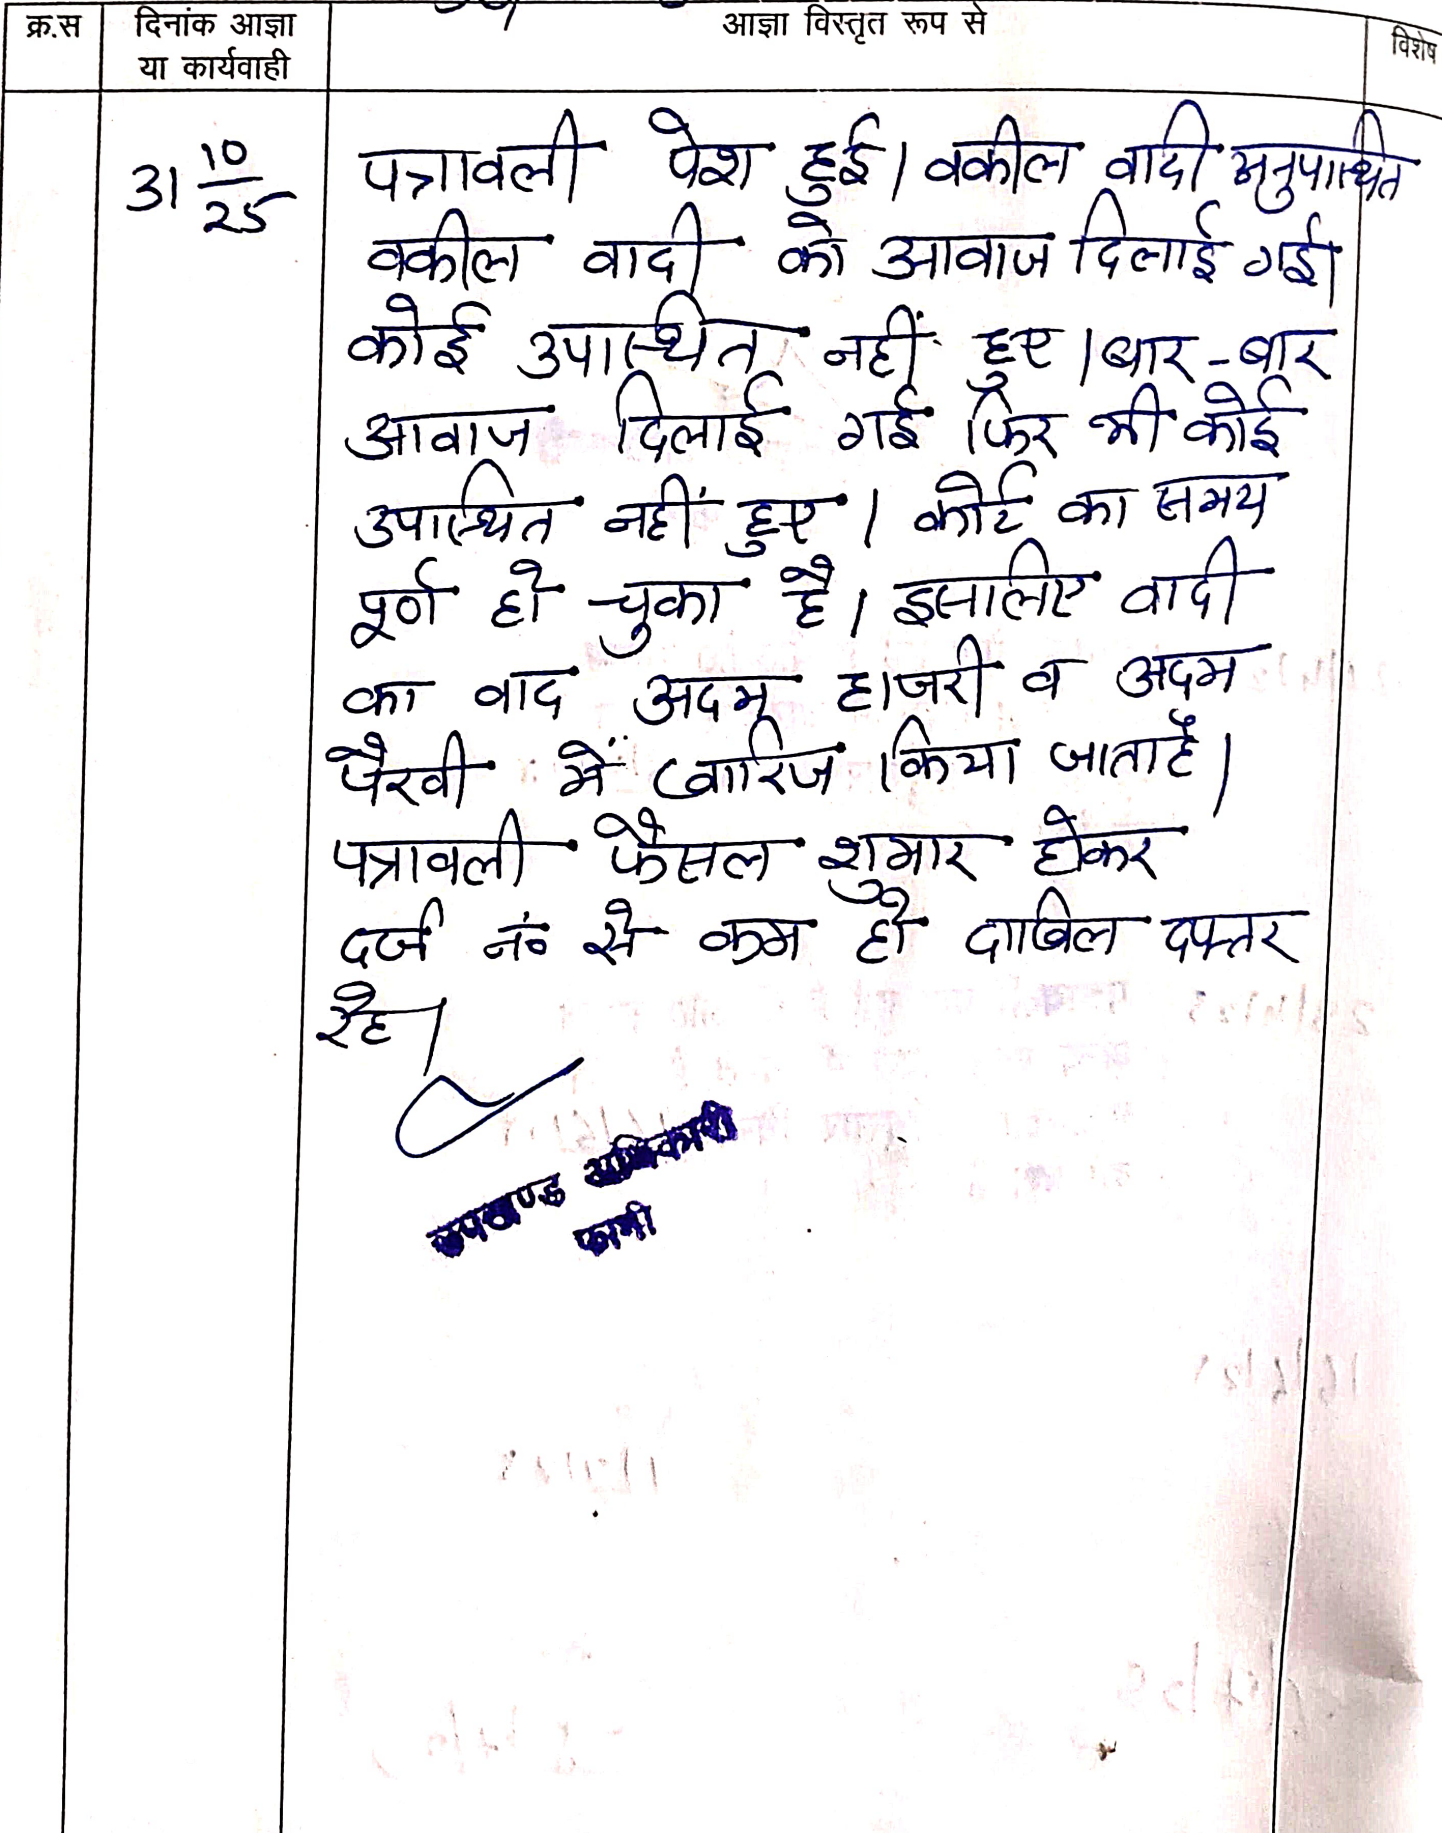 क्र.स दिनांक आज्ञा आज्ञा विस्तृत रूप से विशेष
या कार्यवाही
31 10/25 पत्रावली पेश हुई। वकील वादी अनुपस्थित
वकील वादी को आवाज दिलाई गई।
कोई उपस्थित नहीं हुए। बार-बार
आवाज दिलाई गई फिर भी कोई
उपस्थित नहीं हुए। कोर्ट का समय
पूर्ण हो चुका है। इसलिए वादी
का वाद अदम हाजरी व अदम
पैरवी में खारिज किया जाता है।
पत्रावली फैसल शुमार होकर
दर्ज नं० से कम हो दाखिल दफ्तर
रहे।
उपखण्ड अधिकारी